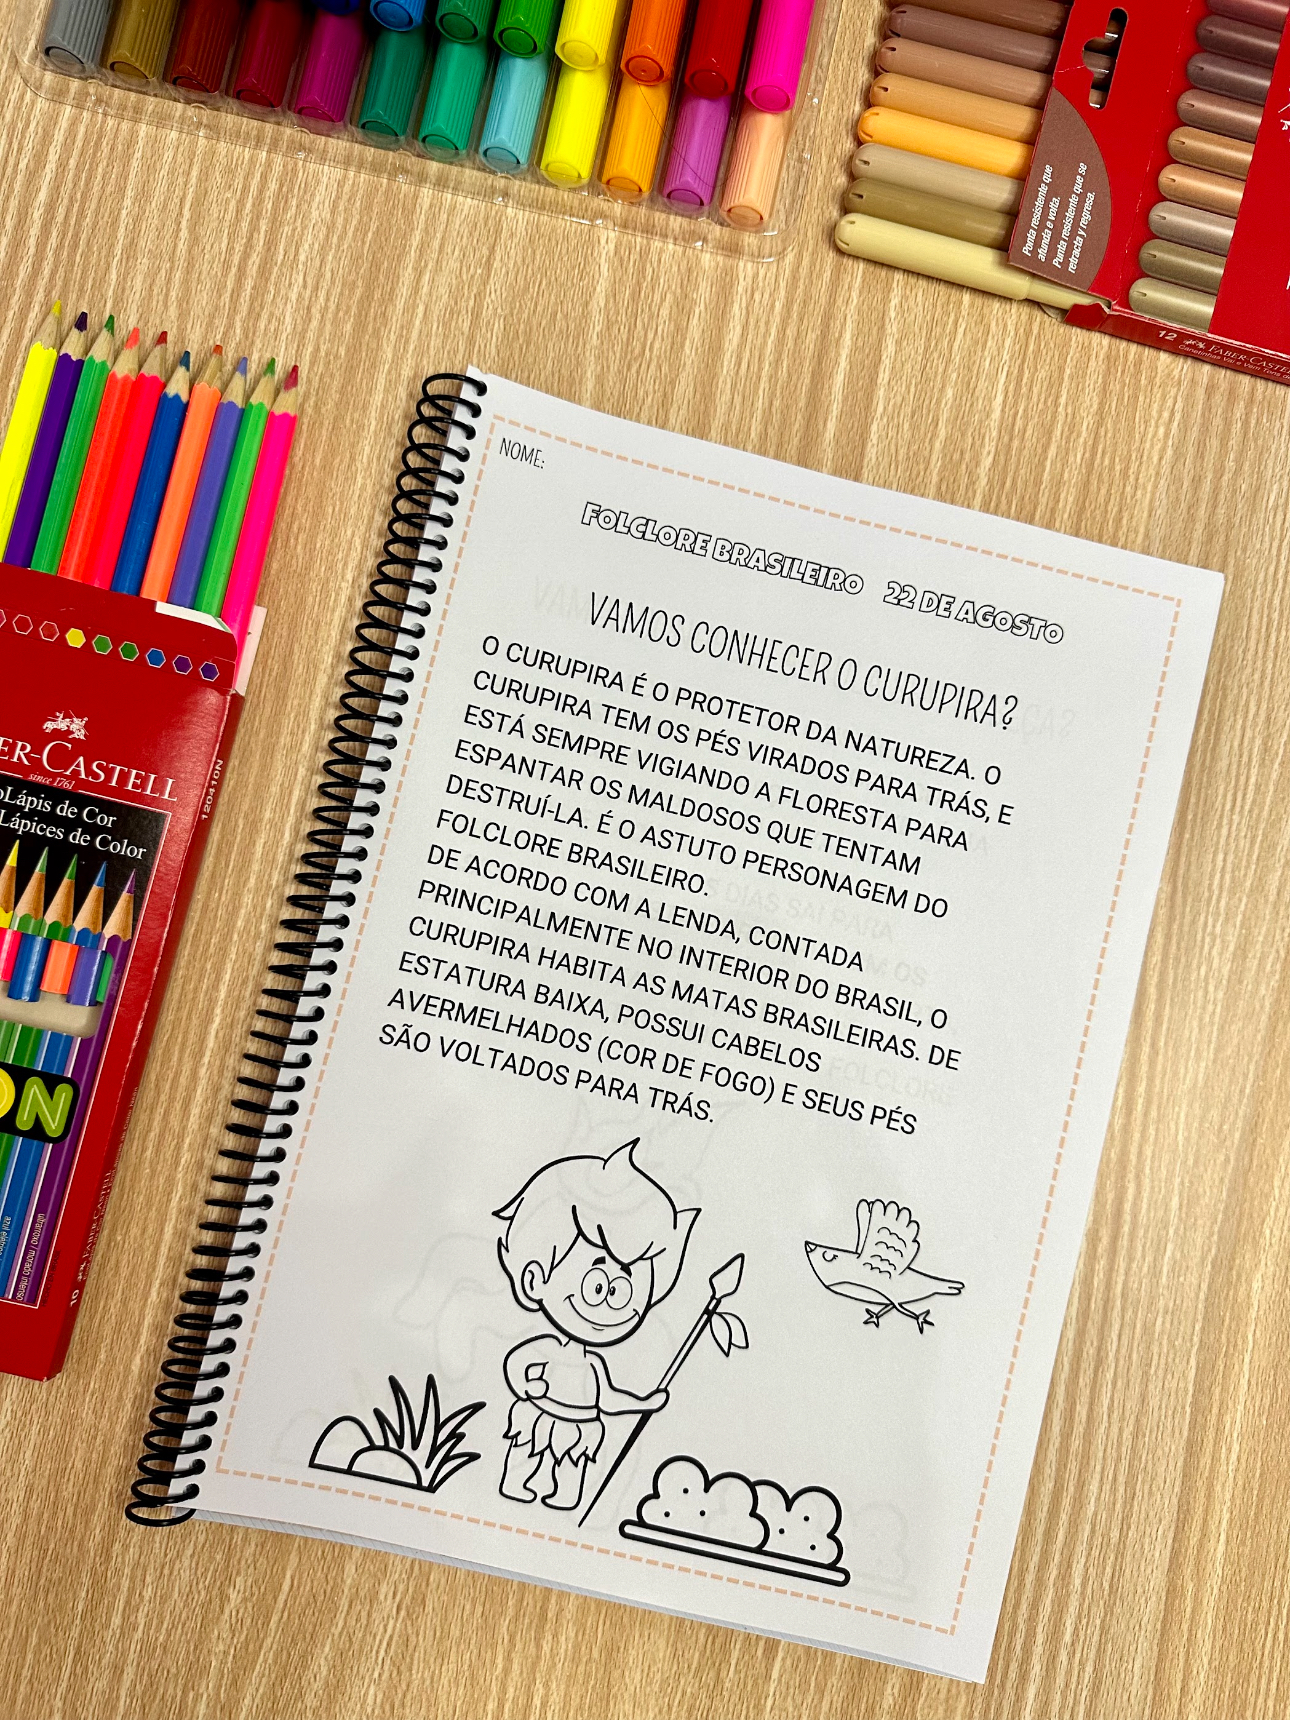 Ponta resistente que
afunda e volta.
Punta resistente que se
retracta y regresa.
12 FABER-CASTELL
NOME:
FOLCLORE BRASILEIRO 22 DE AGOSTO
VAMOS CONHECER O CURUPIRA?
O CURUPIRA É O PROTETOR DA NATUREZA. O
CURUPIRA TEM OS PÉS VIRADOS PARA TRÁS, E
ESTÁ SEMPRE VIGIANDO A FLORESTA PARA
ESPANTAR OS MALDOSOS QUE TENTAM
DESTRUÍ-LA. É O ASTUTO PERSONAGEM DO
FOLCLORE BRASILEIRO.
DE ACORDO COM A LENDA, CONTADA
PRINCIPALMENTE NO INTERIOR DO BRASIL, O
CURUPIRA HABITA AS MATAS BRASILEIRAS. DE
ESTATURA BAIXA, POSSUI CABELOS
AVERMELHADOS (COR DE FOGO) E SEUS PÉS
SÃO VOLTADOS PARA TRÁS.
ER-CASTELL
since 1761
Lápis de Cor
Lápices de Color
120410N
ON
10